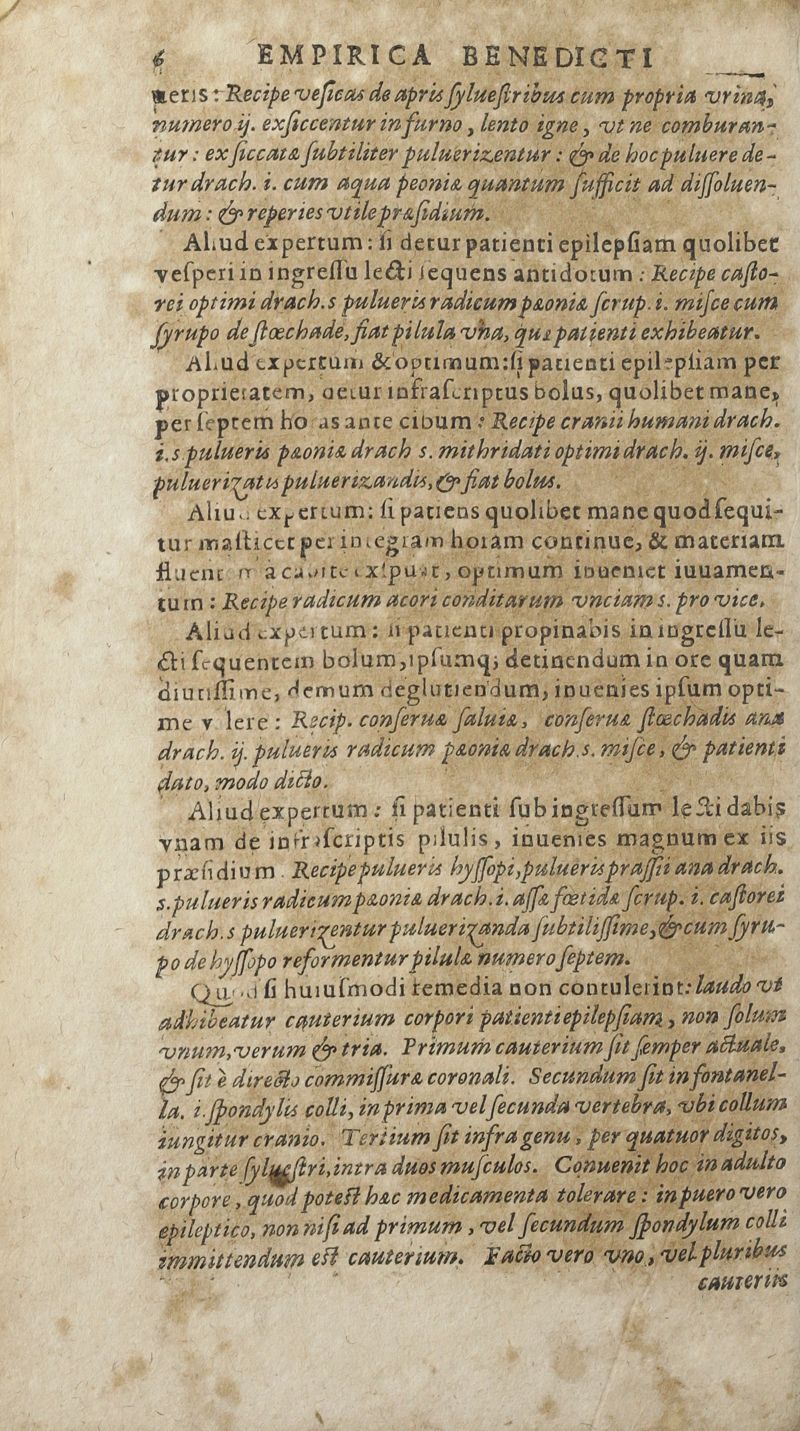 6 EMPIRICA BENEDICTI
neris: Recipe veſicas de apris ſylueſtribus cum propria vrina,
numero ij. exſiccentur in furno, lento igne, vt ne comburan-
tur: exſiccatæ ſubtiliter puluerizentur: & de hoc puluere de-
tur drach. i. cum aqua peoniæ quantum ſufficit ad diſſoluen-
dum: & reperies vtile præſidium.
Aliud expertum: ſi detur patienti epilepſiam quolibet
veſperi in ingreſſu lecti ſequens antidotum: Recipe caſto-
rei optimi drach. s pulueris radicum pæoniæ ſcrup. i. miſce cum
ſyrupo de ſtœchade, fiat pilula vna, quæ patienti exhibeatur.
Aliud expertum & optimum: ſi patienti epilepſiam per
proprietatem, detur infraſcriptus bolus, quolibet mane,
per ſeptem horas ante cibum: Recipe cranii humani drach.
i. s. pulueris pæoniæ drach s. mithridati optimi drach. ij. miſce,
puluerizatis puluerizandis, & fiat bolus.
Aliud expertum: ſi patiens quolibet mane quod ſequi-
tur maſticet per integram horam continue, & materiam
fluentem à capite expuat, optimum inueniet iuuamen-
tum: Recipe radicum acori conditarum vnciam s. pro vice.
Aliud expertum: ſi patienti propinabis in ingreſſu le-
cti ſequentem bolum, ipſumq; detinendum in ore quam
diutiſſime, demum deglutiendum, inuenies ipſum opti-
me v lere: Recip. conſeruæ ſaluiæ, conſeruæ ſtœchadis ana
drach. ij. pulueris radicum pæoniæ drach. s. miſce, & patienti
dato, modo dicto.
Aliud expertum: ſi patienti ſub ingreſſum lecti dabis
vnam de infraſcriptis pilulis, inuenies magnum ex iis
præſidium. Recipe pulueris hyſſopi, pulueris praſſii ana drach.
s. pulueris radicum pæoniæ drach. i. aſſæ fœtidæ ſcrup. i. caſtorei
drach. s puluerizentur puluerizanda ſubtiliſſime, & cum ſyru-
po de hyſſopo reformentur pilulæ numero ſeptem.
Quod ſi huiuſmodi remedia non contulerint: laudo vt
adhibeatur cauterium corpori patienti epilepſiam, non ſolum
vnum, verum & tria. Primum cauterium ſit ſemper actuale,
& ſit è directo commiſſuræ coronali. Secundum ſit in fontanel-
la. i. ſpondylis colli, in prima vel ſecunda vertebra, vbi collum
iungitur cranio. Tertium ſit infra genu, per quatuor digitos,
in parte ſylueſtri, intra duos muſculos. Conuenit hoc in adulto
corpore, quod poteſt hæc medicamenta tolerare: in puero vero
epileptico, non niſi ad primum, vel ſecundum ſpondylum colli
immittendum eſt cauterium. Facto vero vno, vel pluribus
cauteriis